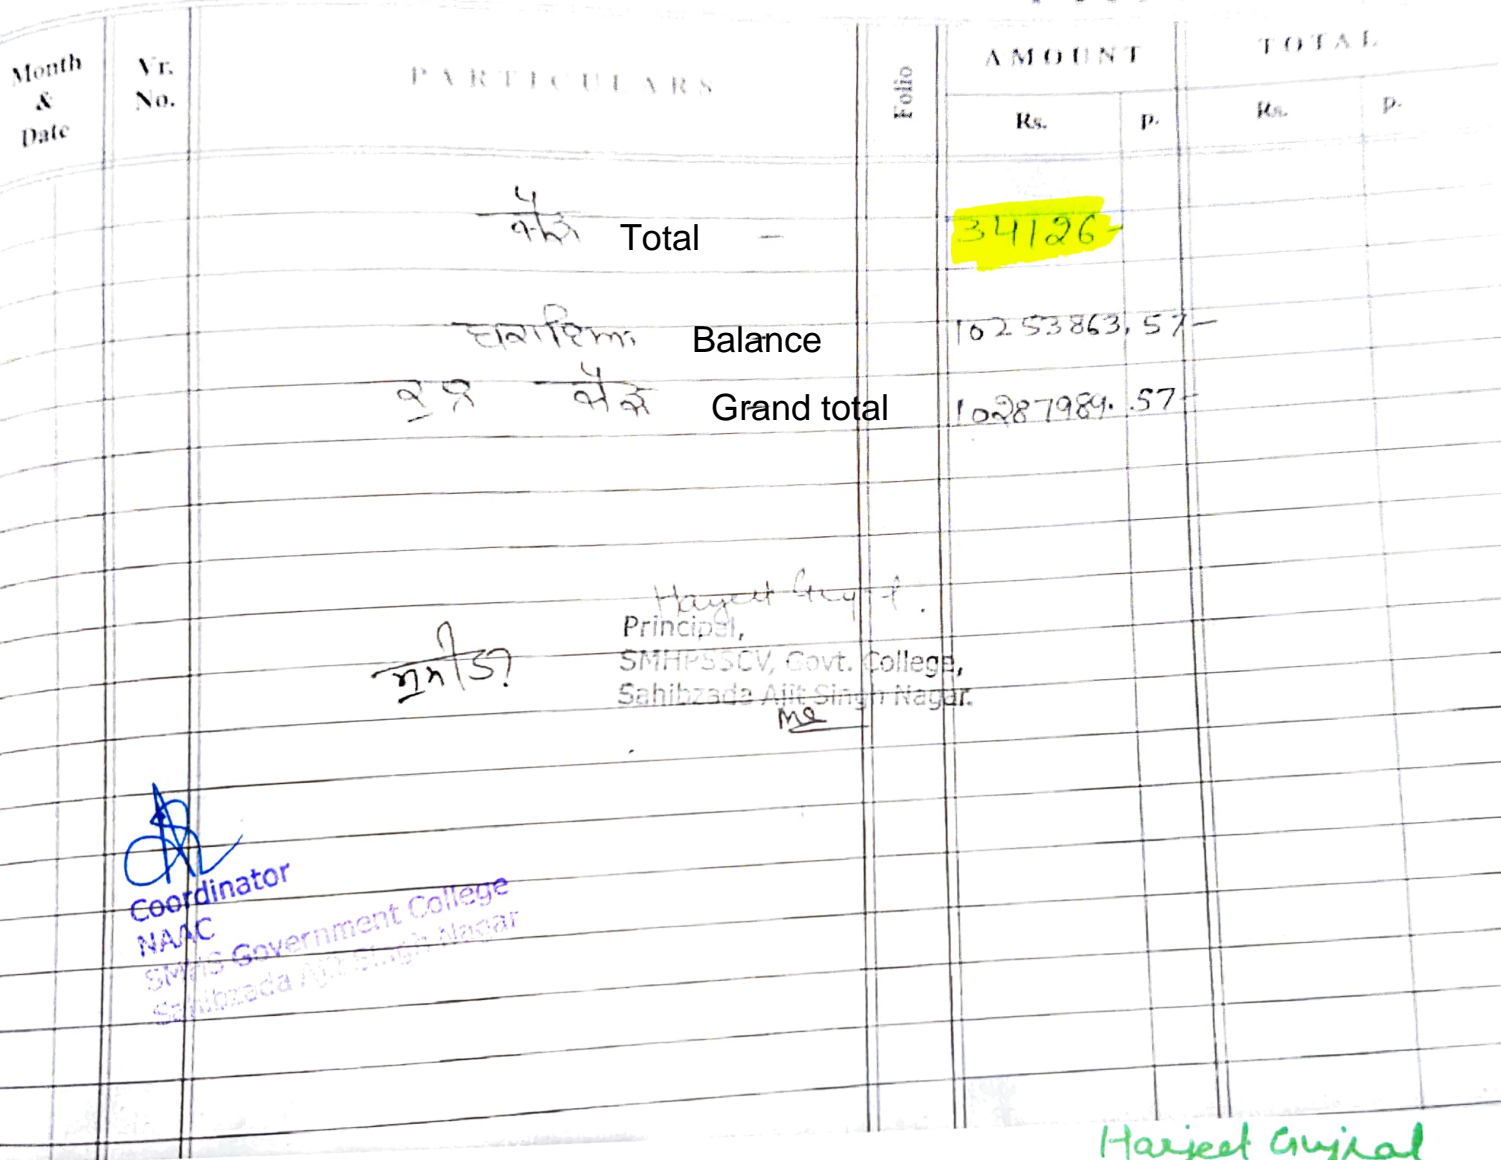 Month & Date Vr. No. PARTICULARS Folio AMOUNT Rs. P. TOTAL Rs. P.
ਜੋੜ Total – 34126-
ਬਕਾਇਆ Balance – 10253863.57-
ਕੁਲ ਜੋੜ Grand total – 10287989.57-
Harjeet Gujral.
Principal,
SMHPSSCV, Govt. College,
Sahibzada Ajit Singh Nagar.
Coordinator
NAAC
SMHS Government College
Sahibzada Ajit Singh Nagar
Harjeet Gujral